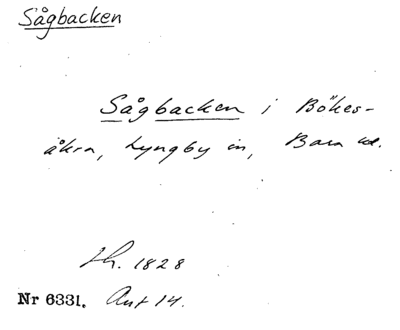 Sågbacken
Sågbacken i Bökes-
åkra, Lyngby sn, Bara hd.
Lh. 1828
Nr 6331. Ant 14.